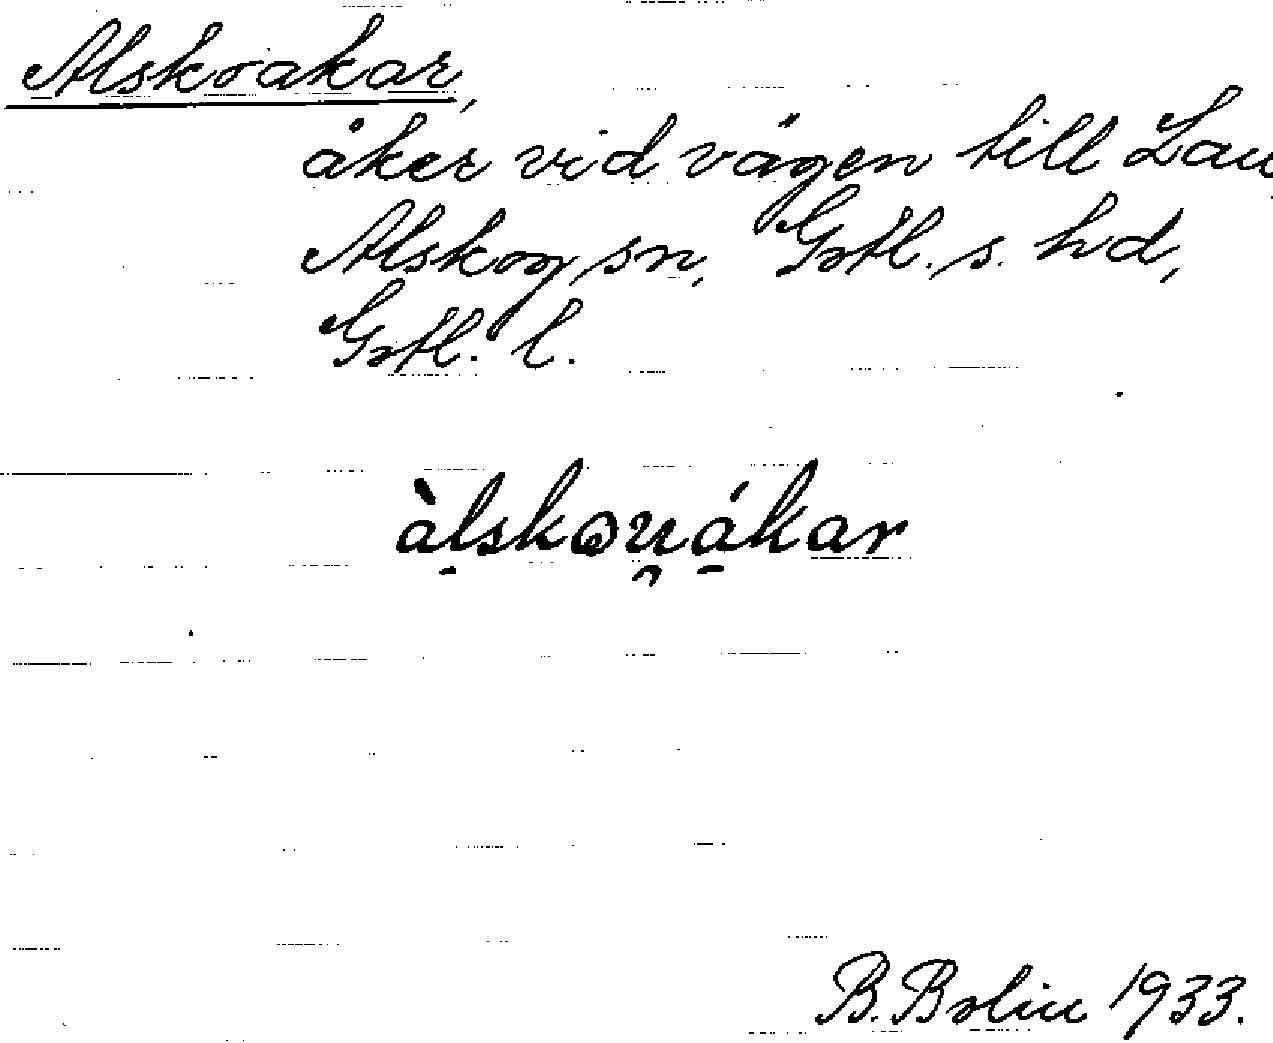 Alskoakar,
åker vid vägen till Lau
Alskog sn, Gotl. s. hd,
Gotl. l.
àlskou̯ákar
B. Bolin 1933.